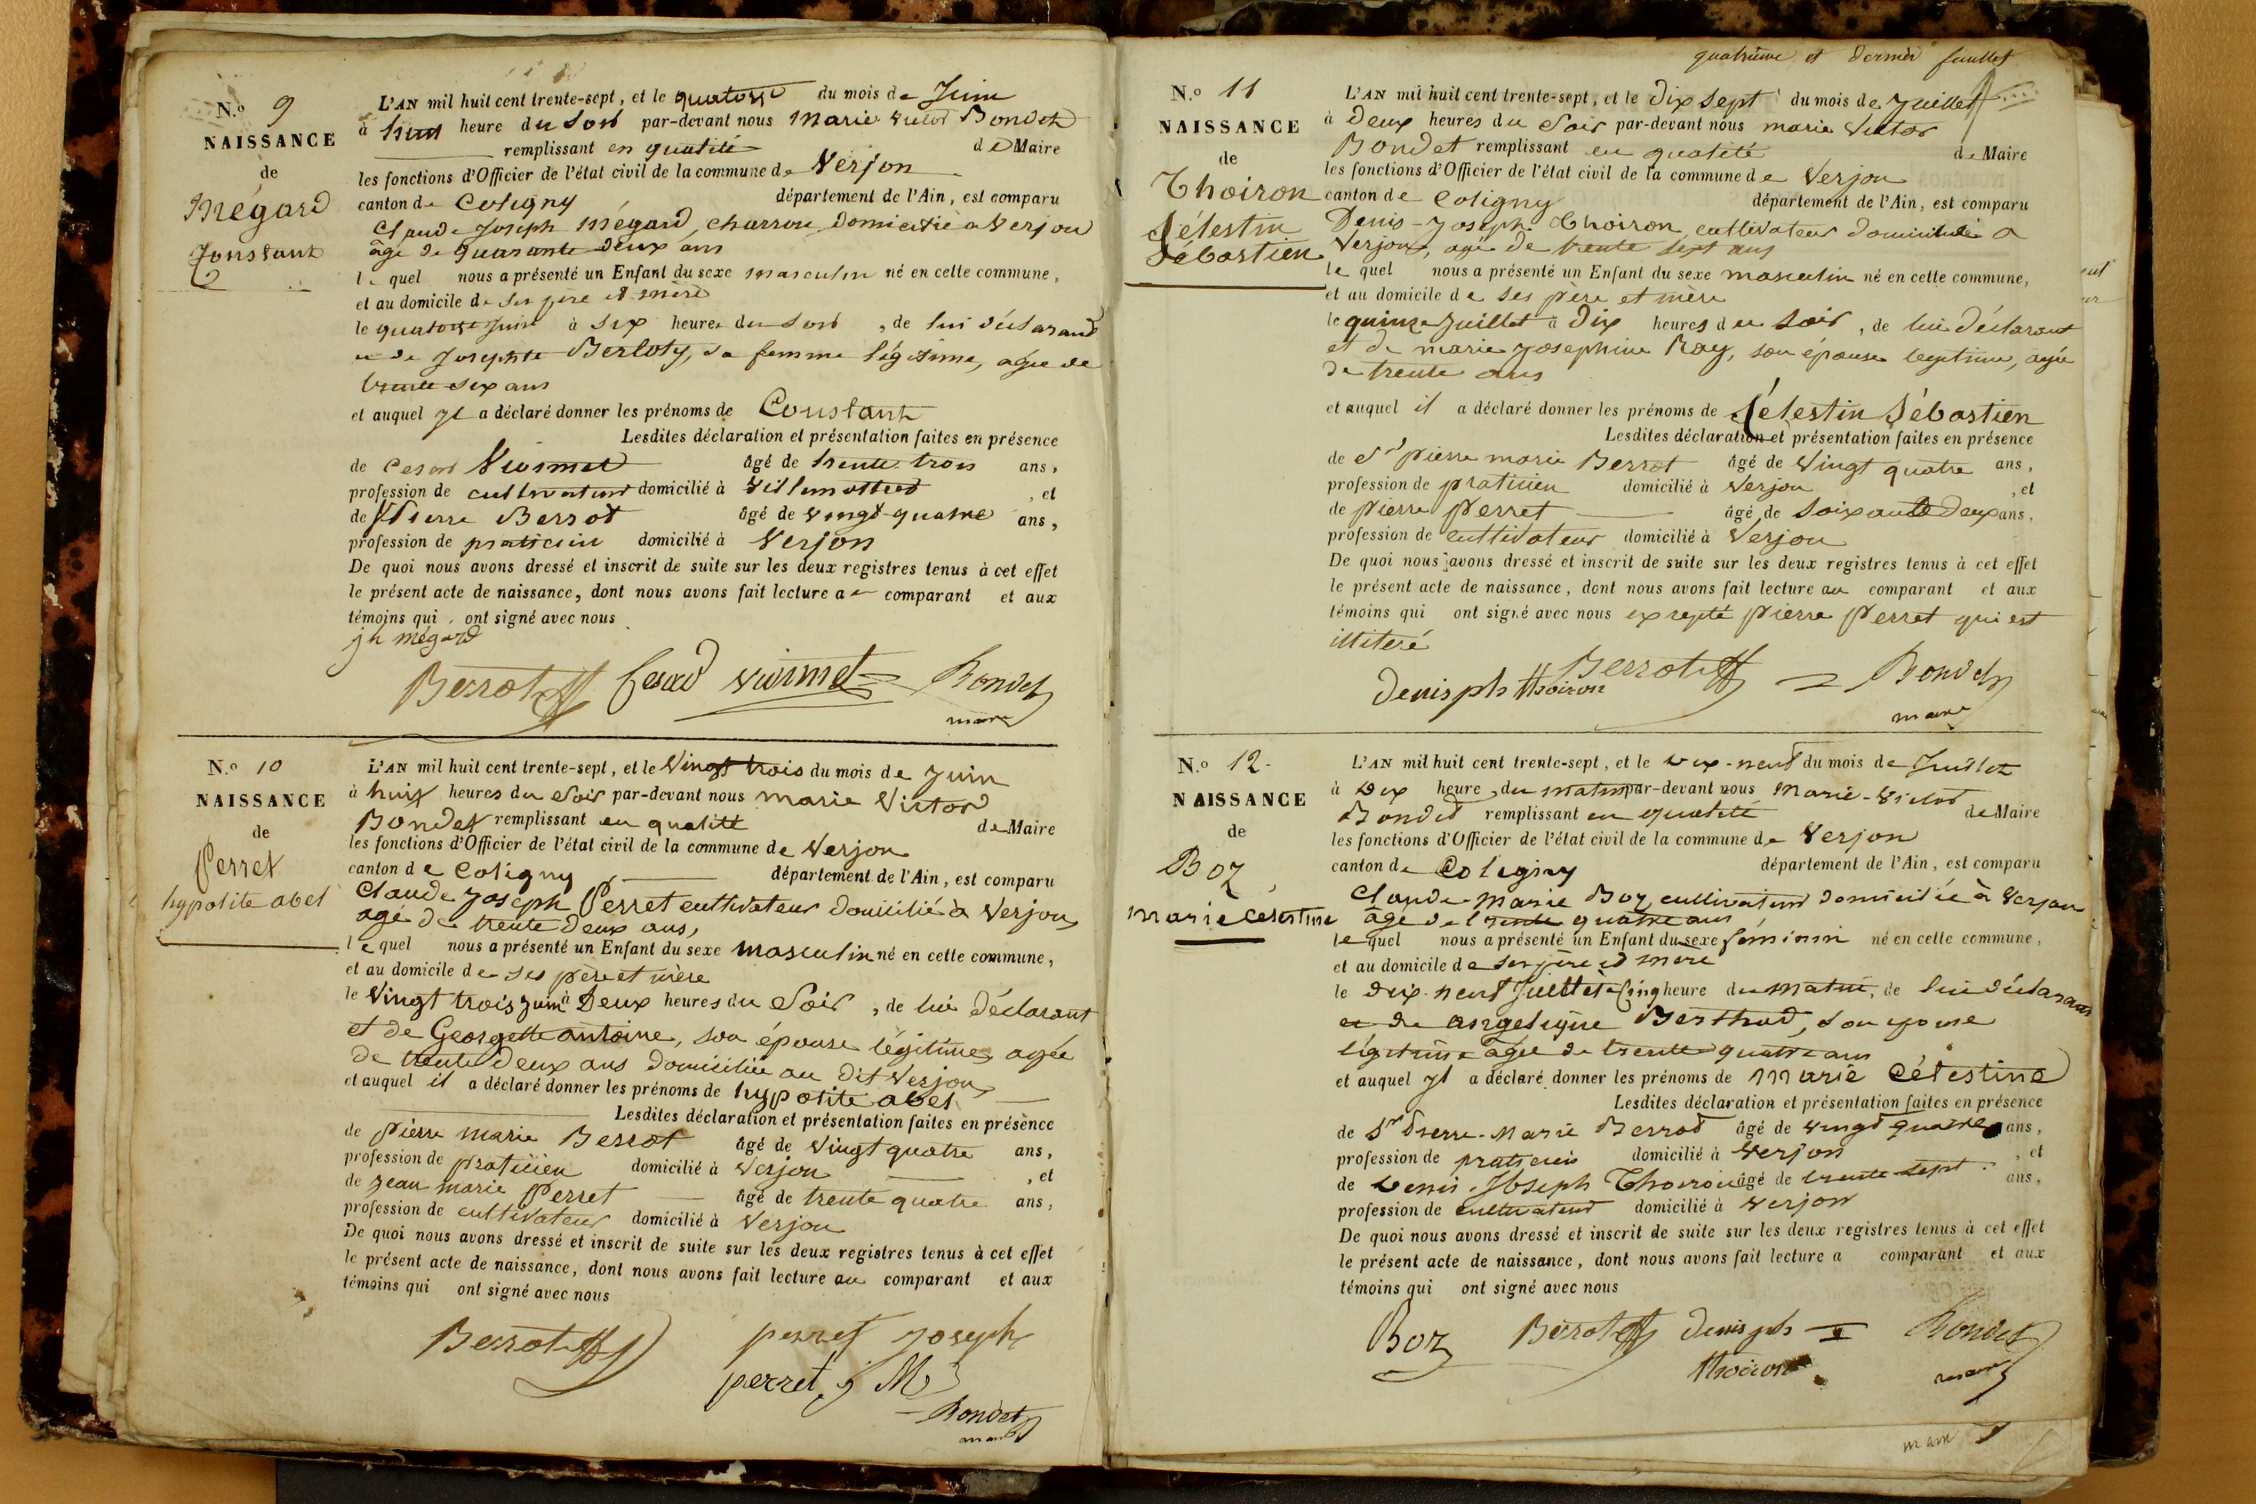 N.o 9
NAISSANCE
de
Mégard
Constant
L'AN mil huit cent trente-sept, et le quatorze du mois de Juin
à huit heure du soir par-devant nous Marie Victor Bondet
remplissant en qualité de Maire
les fonctions d'Officier de l'état civil de la commune de Verjon
canton de Coligny département de l'Ain, est comparu
Claude Joseph Mégard, charron, domicilié à Verjon
âgé de quarante deux ans
lequel nous a présenté un Enfant du sexe masculin né en cette commune,
et au domicile de ses père et mère
le quatorze Juin à six heures du soir, de lui déclarant
et de Josephte Berloty, sa femme légitime, agée de
trente six ans
et auquel yl a déclaré donner les prénoms de Constant
Lesdites déclaration et présentation faites en présence
de Cesard Vuirmet âgé de trente trois ans,
profession de cultivateur domicilié à Villemottier, et
de Pierre Berrot âgé de vingt-quatre ans,
profession de praticien domicilié à Verjon
De quoi nous avons dressé et inscrit de suite sur les deux registres tenus à cet effet
le présent acte de naissance, dont nous avons fait lecture a comparant et aux
témoins qui ont signé avec nous
jh mégard
Berrot Cesard vuirmet Bondet
maire
N.o 10
NAISSANCE
de
Perret
hypolite abel
L'AN mil huit cent trente-sept, et le Vingt trois du mois de Juin
à huit heures du Soir par-devant nous marie Victor
Bondet remplissant en qualité de Maire
les fonctions d'Officier de l'état civil de la commune de Verjon
canton de Coligny département de l'Ain, est comparu
Claude Joseph Perret cultivateur domicilié à Verjon,
agé de trente Deux ans,
lequel nous a présenté un Enfant du sexe masculin né en cette commune,
et au domicile de ses père et mère
le Vingt trois juin à Deux heures du Soir, de lui déclarant
et de Georgette antoine, son épouse légitime, agée
de trente Deux ans domiciliée au Dit Verjon,
et auquel il a déclaré donner les prénoms de hypolite abel
Lesdites déclaration et présentation faites en présence
de pierre marie Berrot âgé de Vingt quatre ans,
profession de praticien domicilié à Verjon, et
de jean marie Perret âgé de trente quatre ans,
profession de cultivateur domicilié à Verjon
De quoi nous avons dressé et inscrit de suite sur les deux registres tenus à cet effet
le présent acte de naissance, dont nous avons fait lecture au comparant et aux
témoins qui ont signé avec nous
Berrot perret joseph
perret j M
Bondet
maire
quatrième et Dernier feuillet
N.o 11
NAISSANCE
de
Thoiron
Célestin
Sébastien
L'AN mil huit cent trente-sept, et le Dix sept du mois de Juillet
à Deux heures du Soir par-devant nous marie Victor
Bondet remplissant en qualité de Maire
les fonctions d'Officier de l'état civil de la commune de Verjon
canton de Coligny département de l'Ain, est comparu
Denis-Joseph Thoiron cultivateur domicilié a
Verjon, agé de trente sept ans
lequel nous a présenté un Enfant du sexe masculin né en cette commune,
et au domicile de ses père et mère
le quinze juillet à Dix heures du Soir, de lui Déclarant
et de marie josephine Ray, son épouse legitime, agée
de trente ans
et auquel il a déclaré donner les prénoms de Célestin Sébastien
Lesdites déclaration et présentation faites en présence
de Sr pierre marie Berrot âgé de Vingt quatre ans,
profession de praticien domicilié à Verjon, et
de pierre Perret âgé de Soixante Deux ans,
profession de cultivateur domicilié à Verjon
De quoi nous avons dressé et inscrit de suite sur les deux registres tenus à cet effet
le présent acte de naissance, dont nous avons fait lecture au comparant et aux
témoins qui ont signé avec nous excepté pierre Perret qui est
illiteré
Denis jph thoiron Berrot Bondet
maire
N.o 12
NAISSANCE
de
Boz
Marie Celestine
L'AN mil huit cent trente-sept, et le dix-neuf du mois de Juillet
à Dix heure du matin par-devant nous Marie-Victor
Bondet remplissant en qualité de Maire
les fonctions d'Officier de l'état civil de la commune de Verjon
canton de Coligny département de l'Ain, est comparu
Claude-Marie Boz cultivateur domiciliée à Verjon
âgé de trente quatre ans
lequel nous a présenté un Enfant du sexe féminin né en cette commune,
et au domicile de ses père et mere
le dix-neuf Juillet à Cinq heure du matin, de lui déclarant
et de angelique Berthod, son épouse
légitime âgée de trente quatre ans
et auquel yl a déclaré donner les prénoms de Marie Célestine
Lesdites déclaration et présentation faites en présence
de Sr Pierre-Marie Berrod âgé de vingt quatre ans,
profession de praticien domicilié à Verjon, et
de Denis-Joseph Thoiron âgé de trente-sept ans,
profession de cultivateur domicilié à Verjon
De quoi nous avons dressé et inscrit de suite sur les deux registres tenus à cet effet
le présent acte de naissance, dont nous avons fait lecture a comparant et aux
témoins qui ont signé avec nous
Boz Berrot Denis jph Bondet
thoiron maire
maire